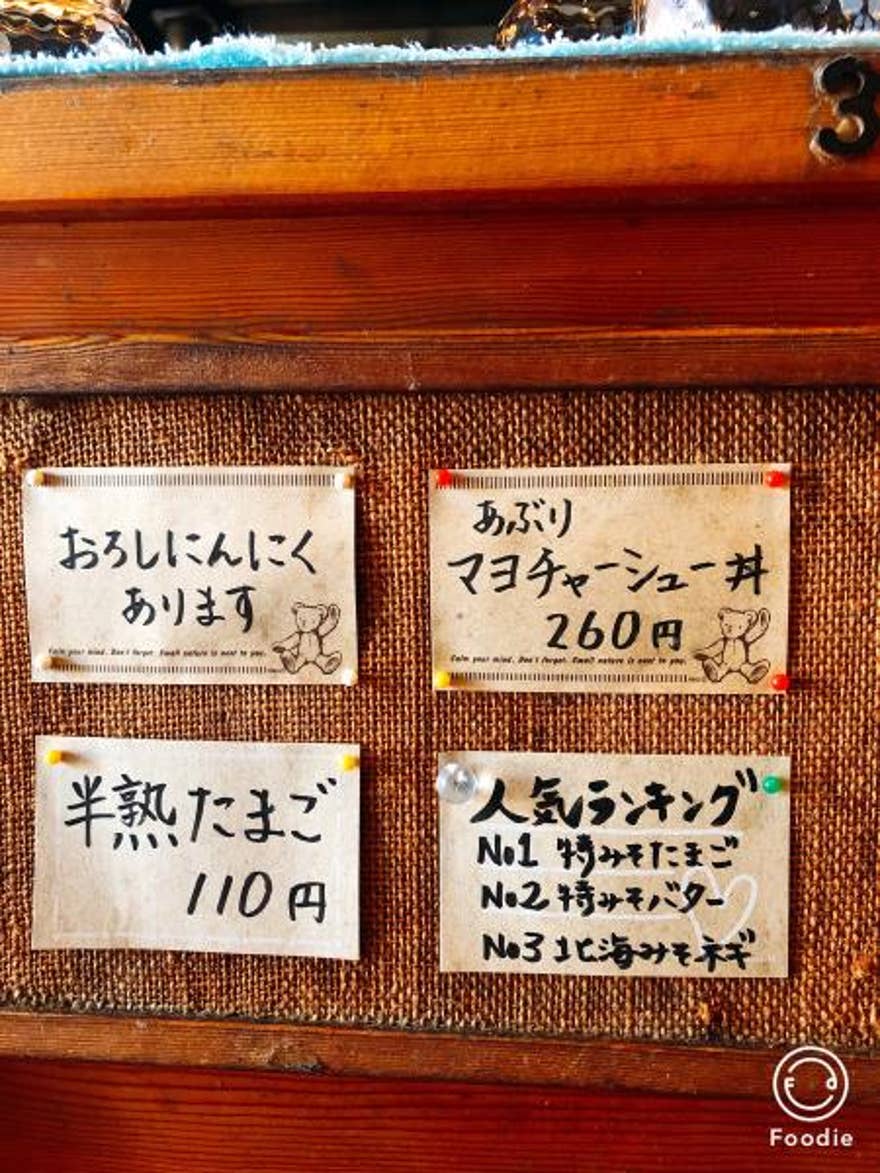 3
おろしにんにく
あります
Calm your mind. Don't forget. Small nature is next to you.
あぶり
マヨチャーシュー丼
260円
Calm your mind. Don't forget. Small nature is next to you.
半熟たまご
110円
人気ランキング
No1 特みそたまご
No2 特みそバター
No3 北海みそネギ
Foodie